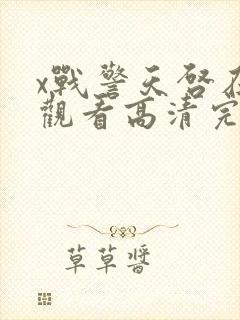 x戰警天啓在
觀看高清完
草草醬